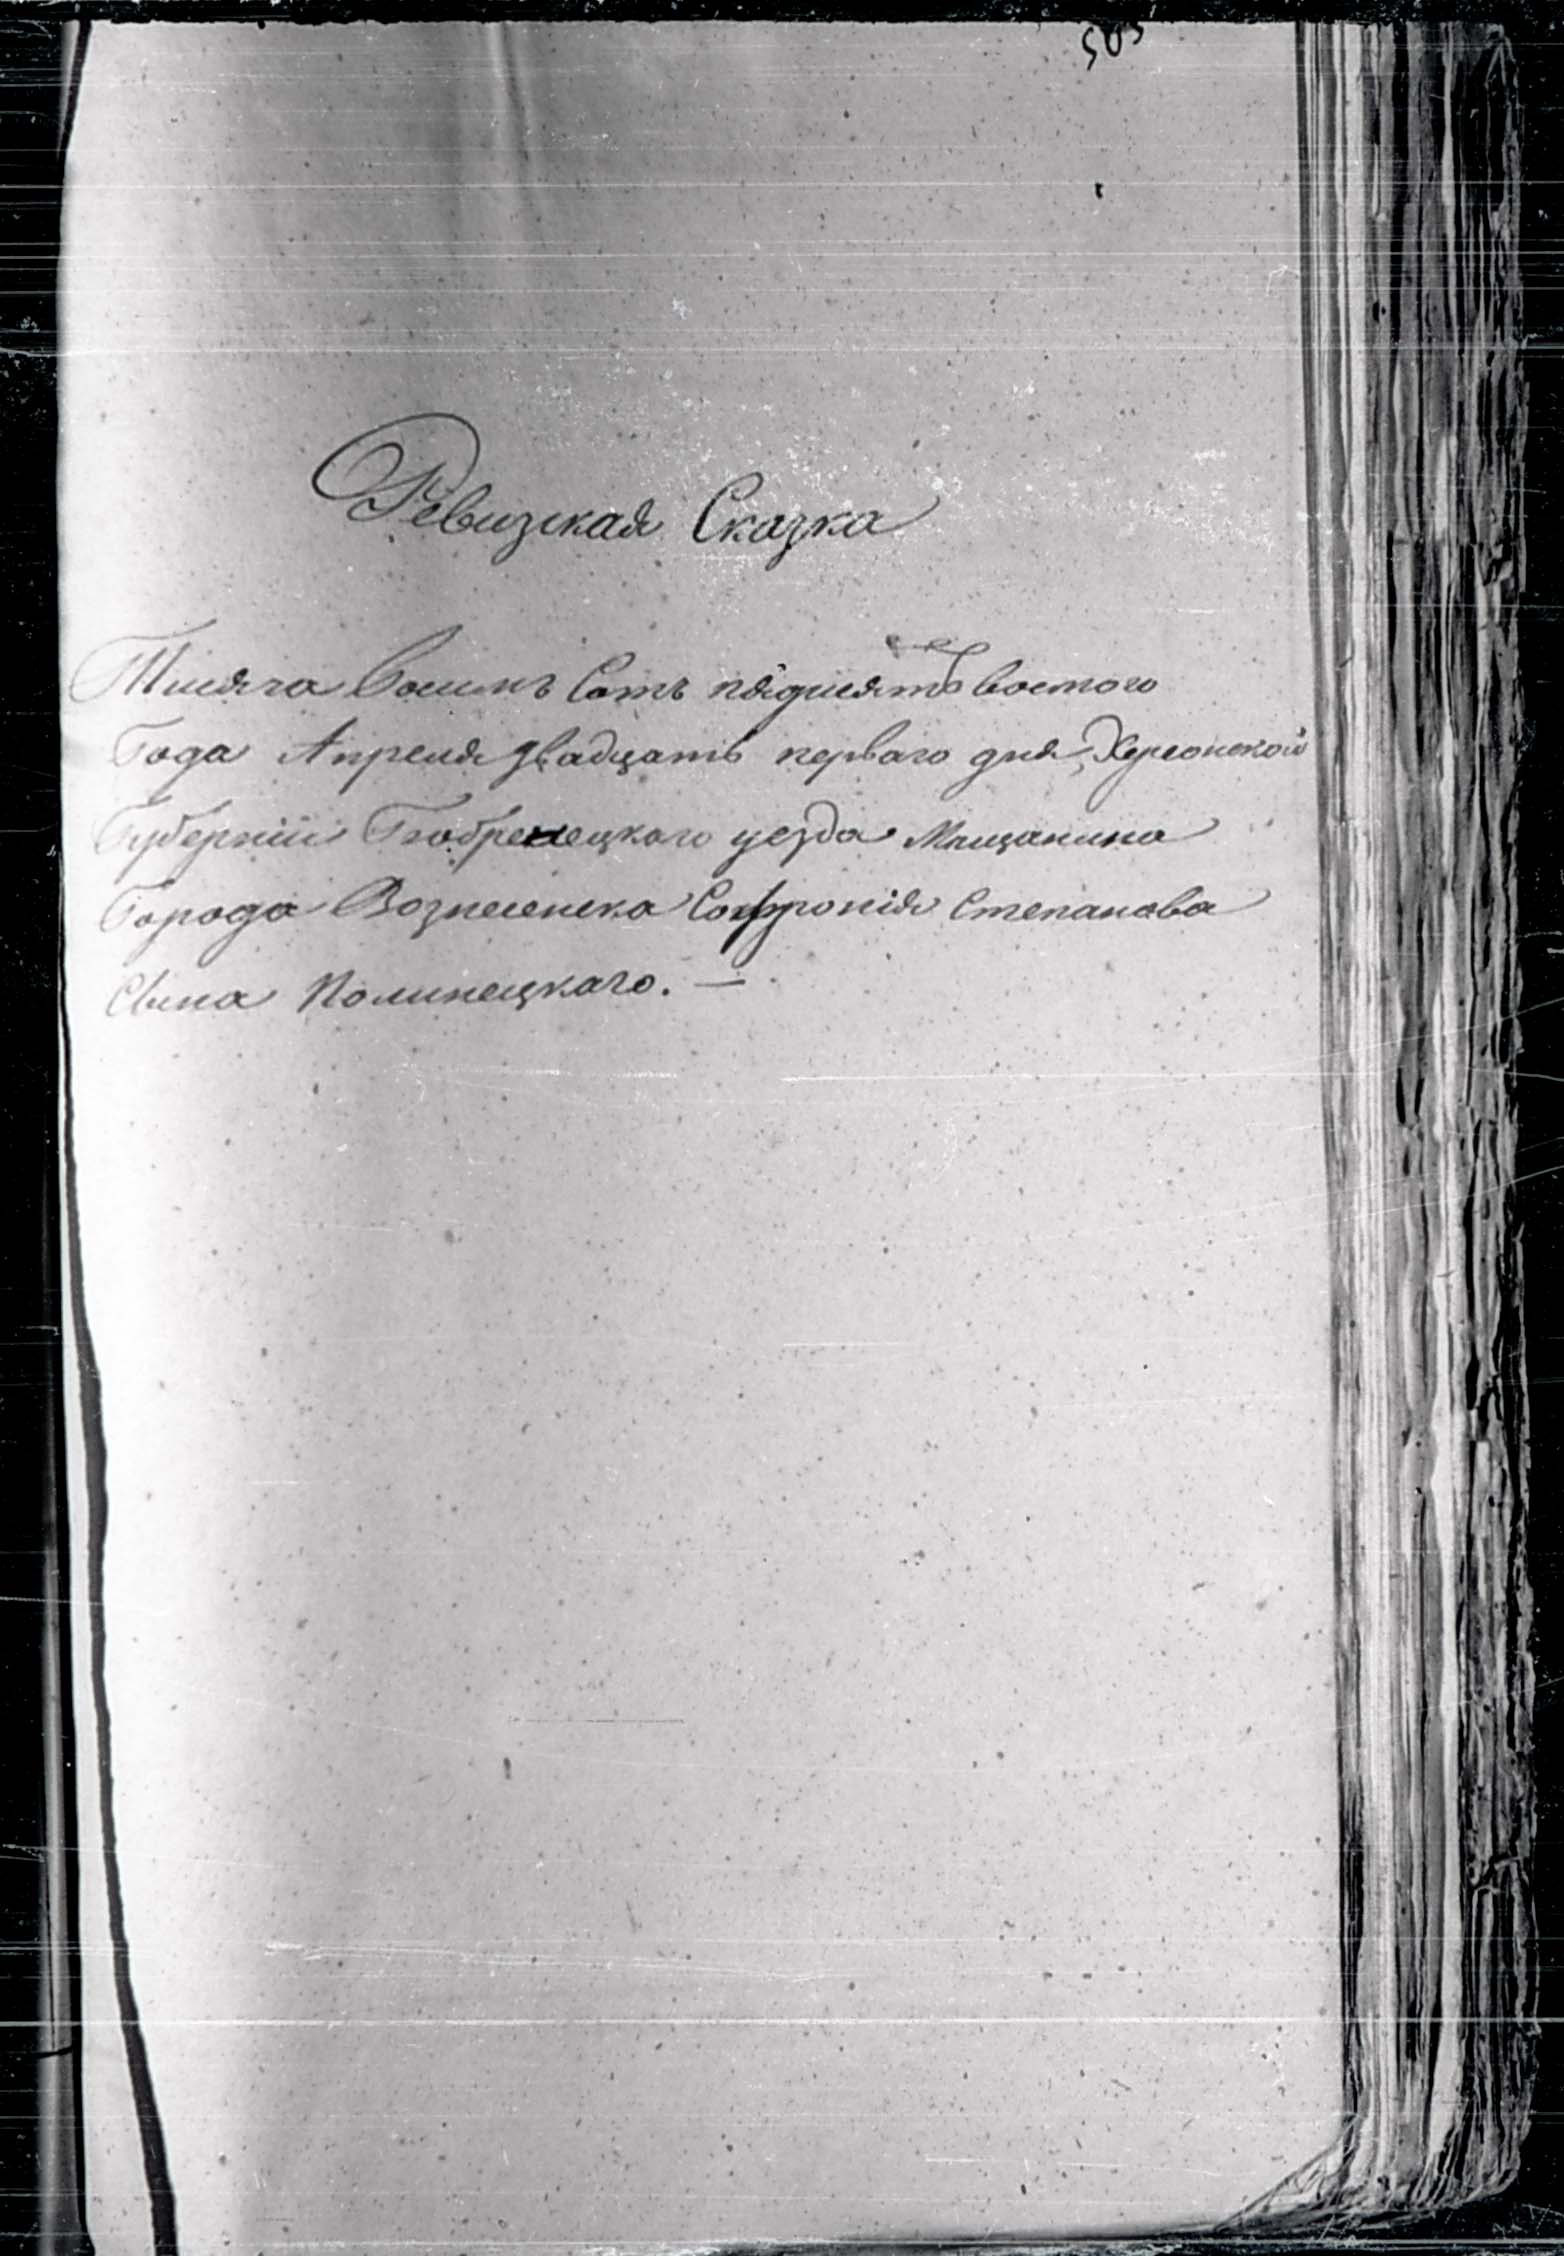 505
Ревизкая Сказка
Тисяча восимъ Сотъ пядисять восмого
Года Апреля двадцать перваго дня, Херсонской
Губерніи Бобренецкаго уезда Мещанина
Города Вознесенска Софронія Степанова
Сына Полинецкаго. —